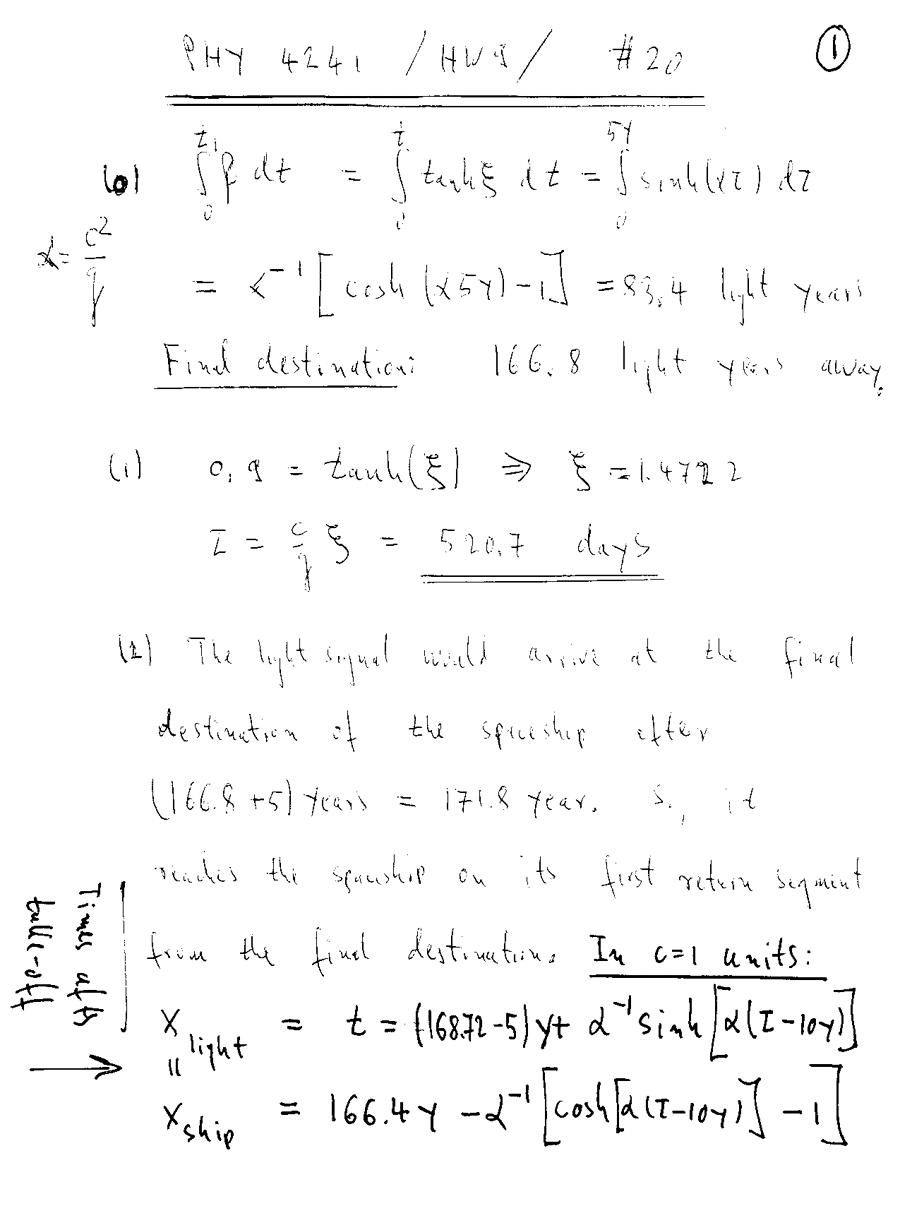 PHY 4241 / HW9 / #20 ①
(0) ∫₀^{t₁} β dt = ∫₀^{t} tanh ξ dt = ∫₀^{5y} sinh(ατ) dτ
α = c²/g
= α⁻¹ [cosh(α5y) - 1] = 83.4 light years
Final destination: 166.8 light years away.
(1) 0.9 = tanh(ξ) ⇒ ξ = 1.4722
τ = c/g ξ = 520.7 days
(2) The light signal would arrive at the final
destination of the spaceship after
(166.8 + 5) years = 171.8 year. So, it
reaches the spaceship on its first return segment
from the final destination. In c=1 units:
Times after
take-off
X light = t = (168.72 - 5) y + α⁻¹ sinh [α(τ - 10y)]
||
X ship = 166.4 y - α⁻¹ [cosh[α(τ - 10y)] - 1]